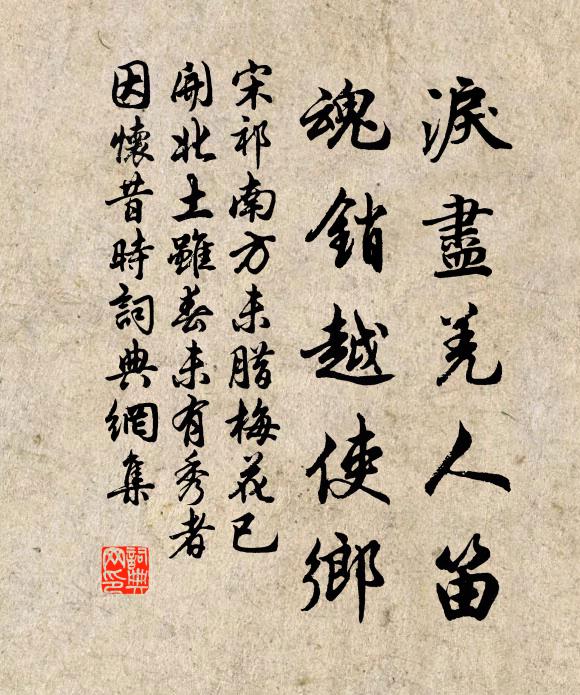 淚盡羌人笛
魂銷越使鄉
宋祁南方未腊梅花已
開北土雖春未有秀者
因懷昔時詞典網集
詞典
网